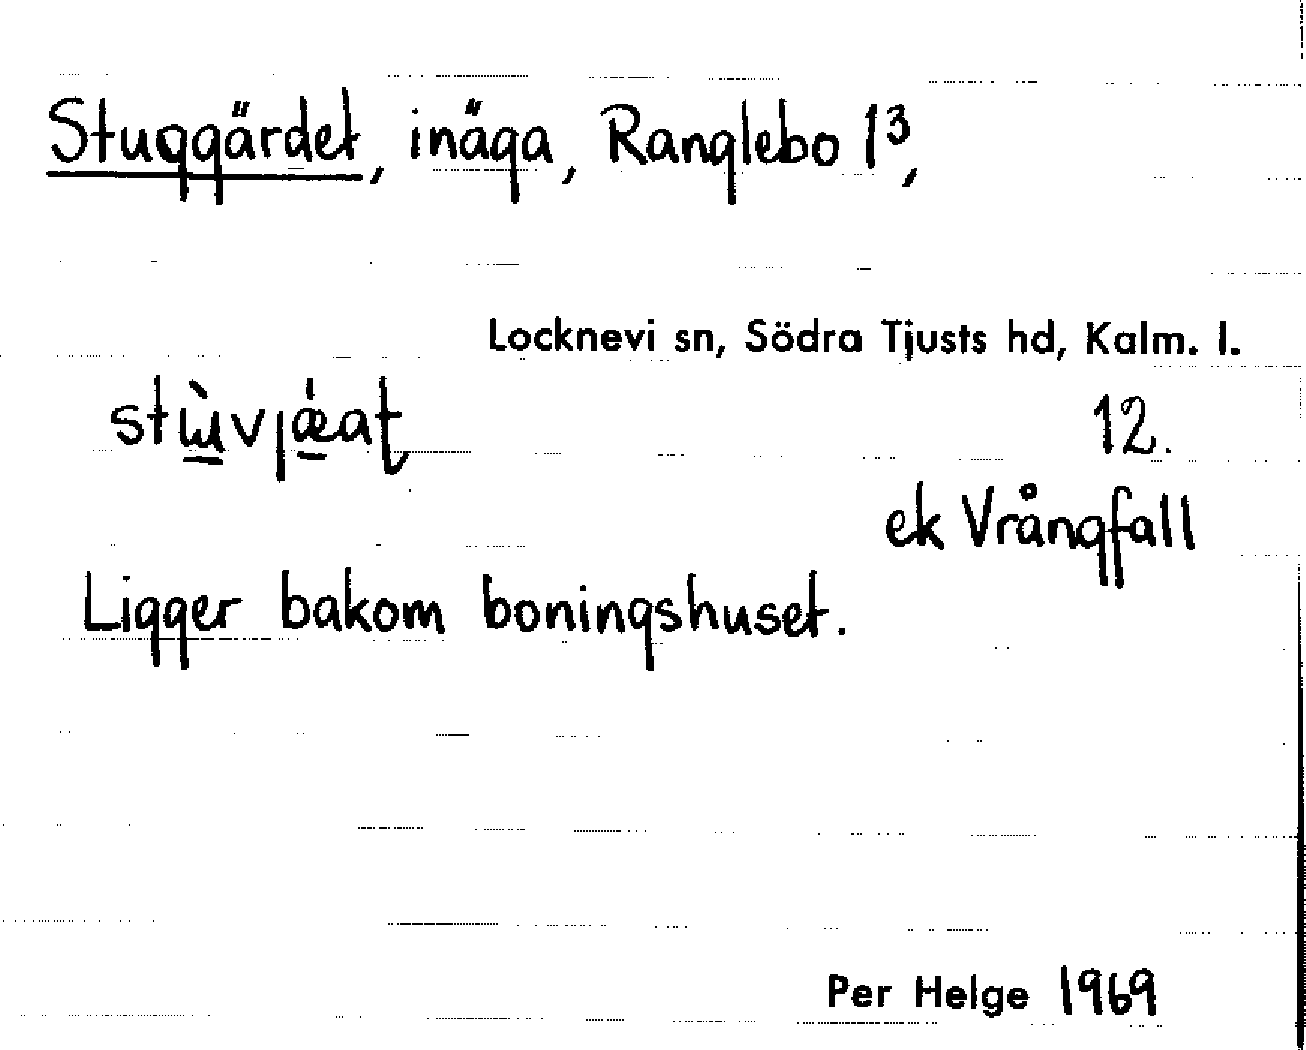 Stuggärdet, inäga, Ranglebo 1³,
Locknevi sn, Södra Tjusts hd, Kalm. l.
12.
ek Vrångfall
Ligger bakom boningshuset.
Per Helge 1969